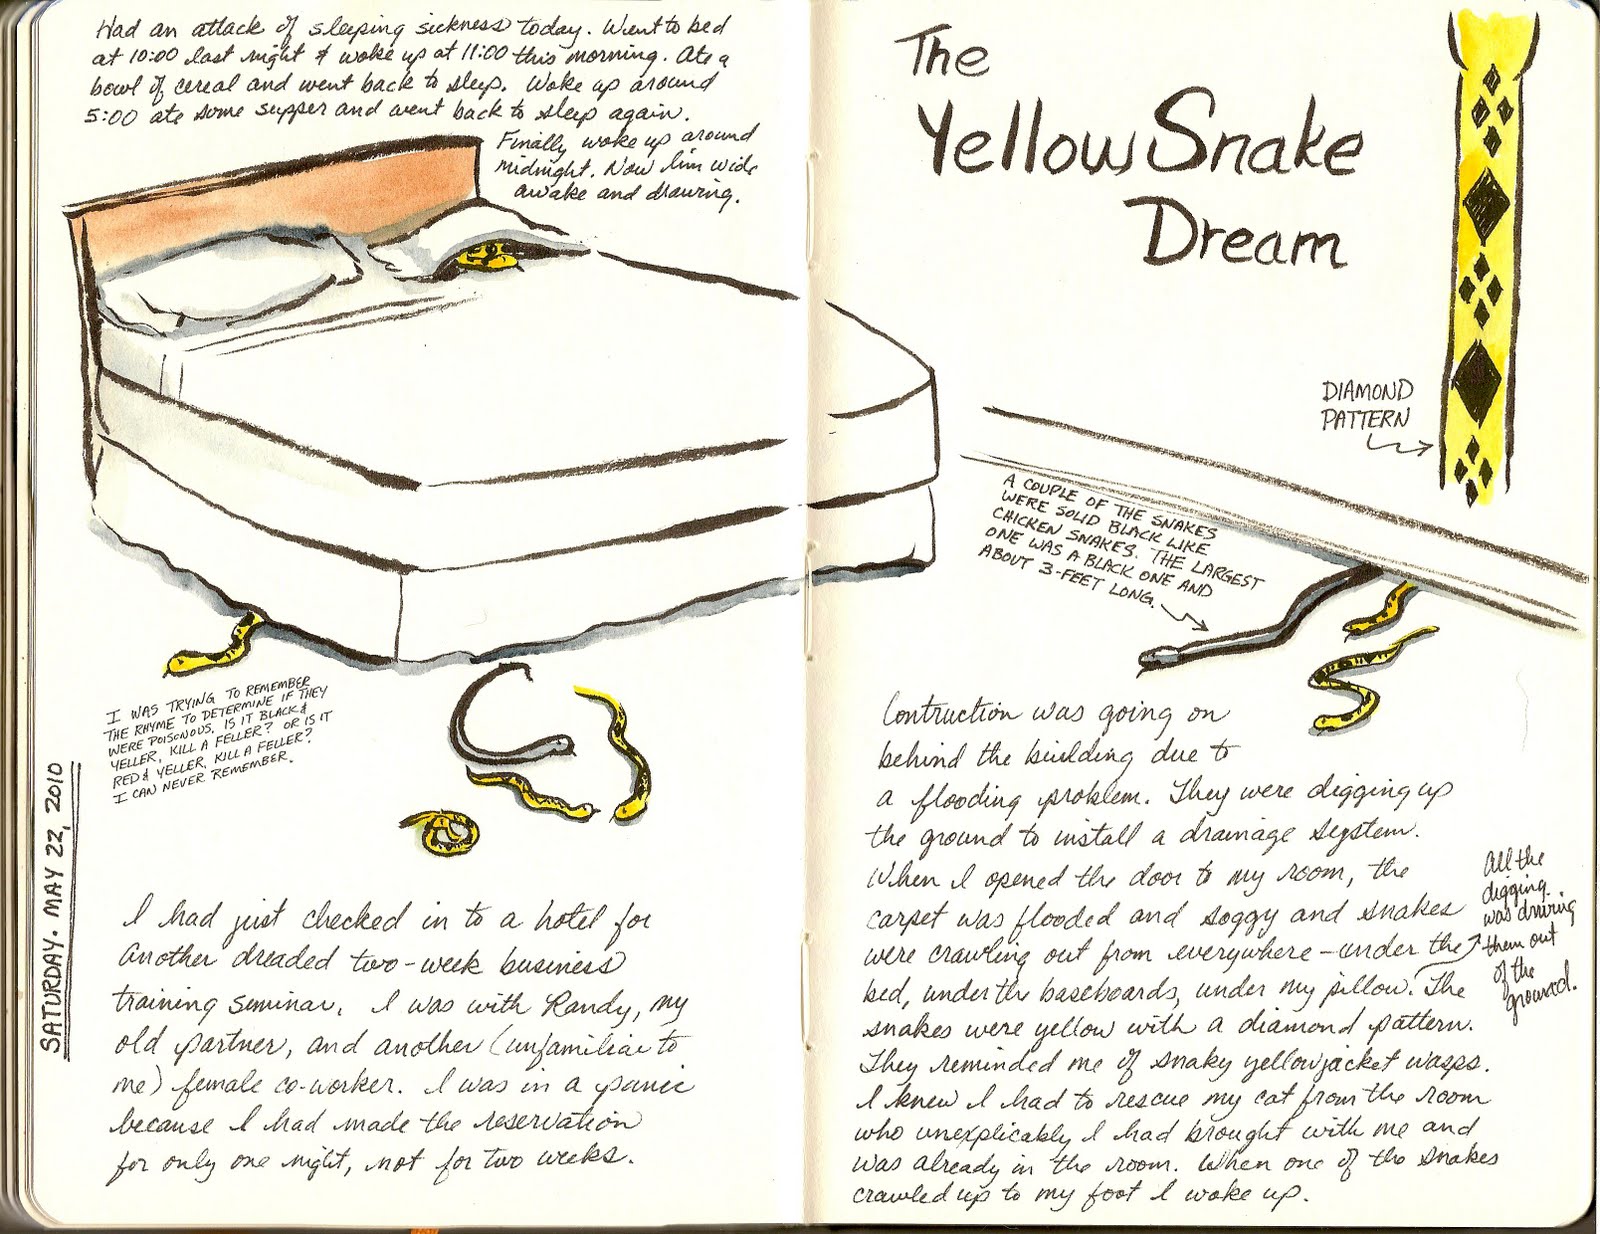 Had an attack of sleeping sickness today. Went to bed
at 10:00 last night & woke up at 11:00 this morning. Ate a
bowl of cereal and went back to sleep. Woke up around
5:00 ate some supper and went back to sleep again.
Finally woke up around
midnight. Now I'm wide
awake and drawing.
I WAS TRYING TO REMEMBER
THE RHYME TO DETERMINE IF THEY
WERE POISONOUS. IS IT BLACK &
YELLER, KILL A FELLER? OR IS IT
RED & YELLER, KILL A FELLER?
I CAN NEVER REMEMBER.
SATURDAY. MAY 22, 2010
I had just checked in to a hotel for
another dreaded two-week business
training seminar. I was with Randy, my
old partner, and another (unfamiliar to
me) female co-worker. I was in a panic
because I had made the reservation
for only one night, not for two weeks.
The
Yellow Snake
Dream
DIAMOND
PATTERN
A COUPLE OF THE SNAKES
WERE SOLID BLACK LIKE
CHICKEN SNAKES. THE LARGEST
ONE WAS A BLACK ONE AND
ABOUT 3-FEET LONG.
Contruction was going on
behind the building due to
a flooding problem. They were digging up
the ground to install a drainage system.
When I opened the door to my room, the
carpet was flooded and soggy and snakes
were crawling out from everywhere – under the
bed, under the baseboards, under my pillow. The
snakes were yellow with a diamond pattern.
They reminded me of snaky yellowjacket wasps.
I knew I had to rescue my cat from the room
who unexplicably I had brought with me and
was already in the room. When one of the snakes
crawled up to my foot I woke up.
All the
digging
was driving
them out
of the
ground.